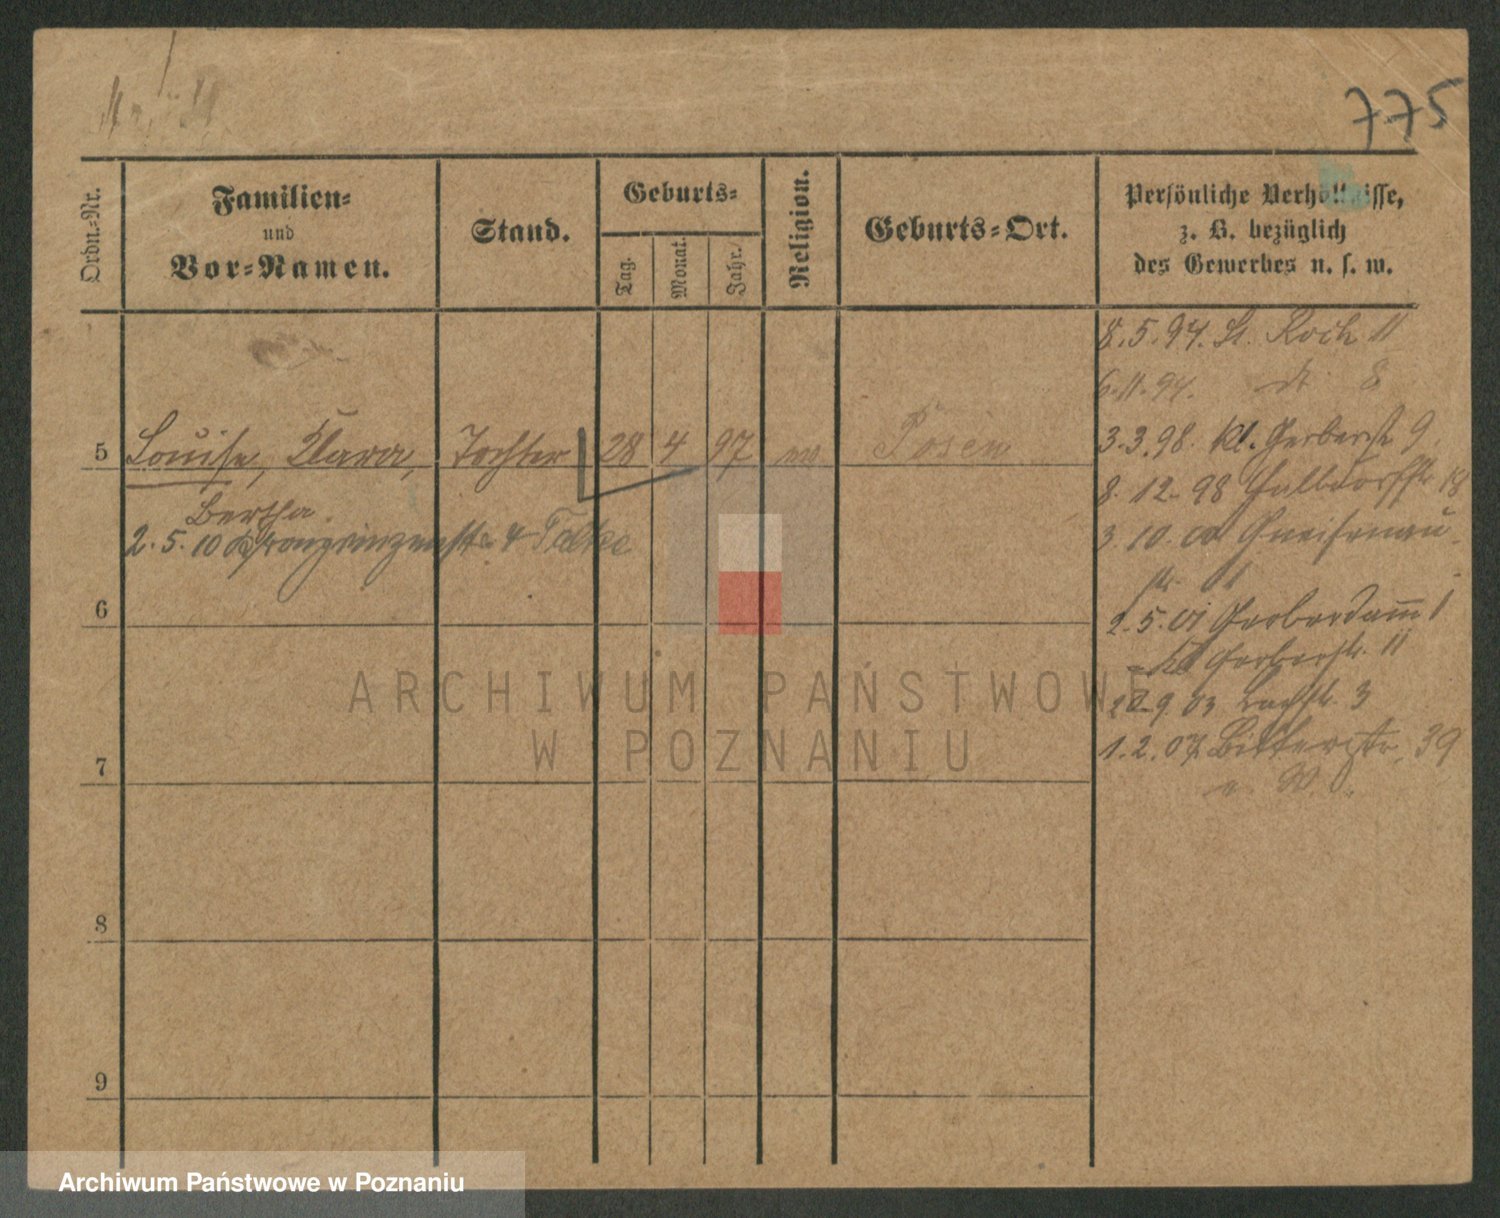 775
Ordn.-Nr.
Familien-
und
Vor-Namen.
Stand.
Geburts-
Tag.
Monat.
Jahr.
Religion.
Geburts-Ort.
Persönliche Verhältnisse,
z. B. bezüglich
des Gewerbes u. s. w.
8.5.94. St. Roch 11
6.11.94. do 8
5 Louise, Clara, Tochter 28 4 97 ev Posen
Bertha
2.5.10 Kronprinzenstr. 4
3.3.98. Kl. Gerberstr 9
8.12.98 18
3.10.00 Gneisenau-
str. 11
2.5.01 Gerberdamm 1
Kl Gerberstr. 11
9.03 3
1.2.07 39
6
7
8
9
ARCHIWUM PAŃSTWOWE
W POZNANIU
Archiwum Państwowe w Poznaniu